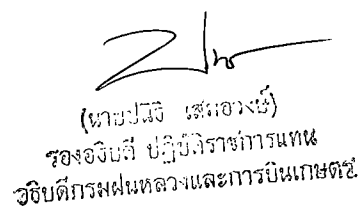 (นายปนิธิ เสมอวงษ์)
รองอธิบดี ปฏิบัติราชการแทน
อธิบดีกรมฝนหลวงและการบินเกษตร